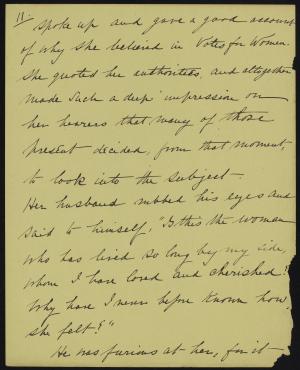 11.
spoke up and gave a good account
of why she believed in Votes for Women.
She quoted her authorities, and altogether
made such a deep impression on
her hearers that many of those
present decided, from that moment,
to look into the subject.
Her husband rubbed his eyes and
said to himself, "Is this the woman
who has lived so long by my side,
whom I have loved and cherished?
Why have I never before known how
she felt?"
He was furious at her, for it